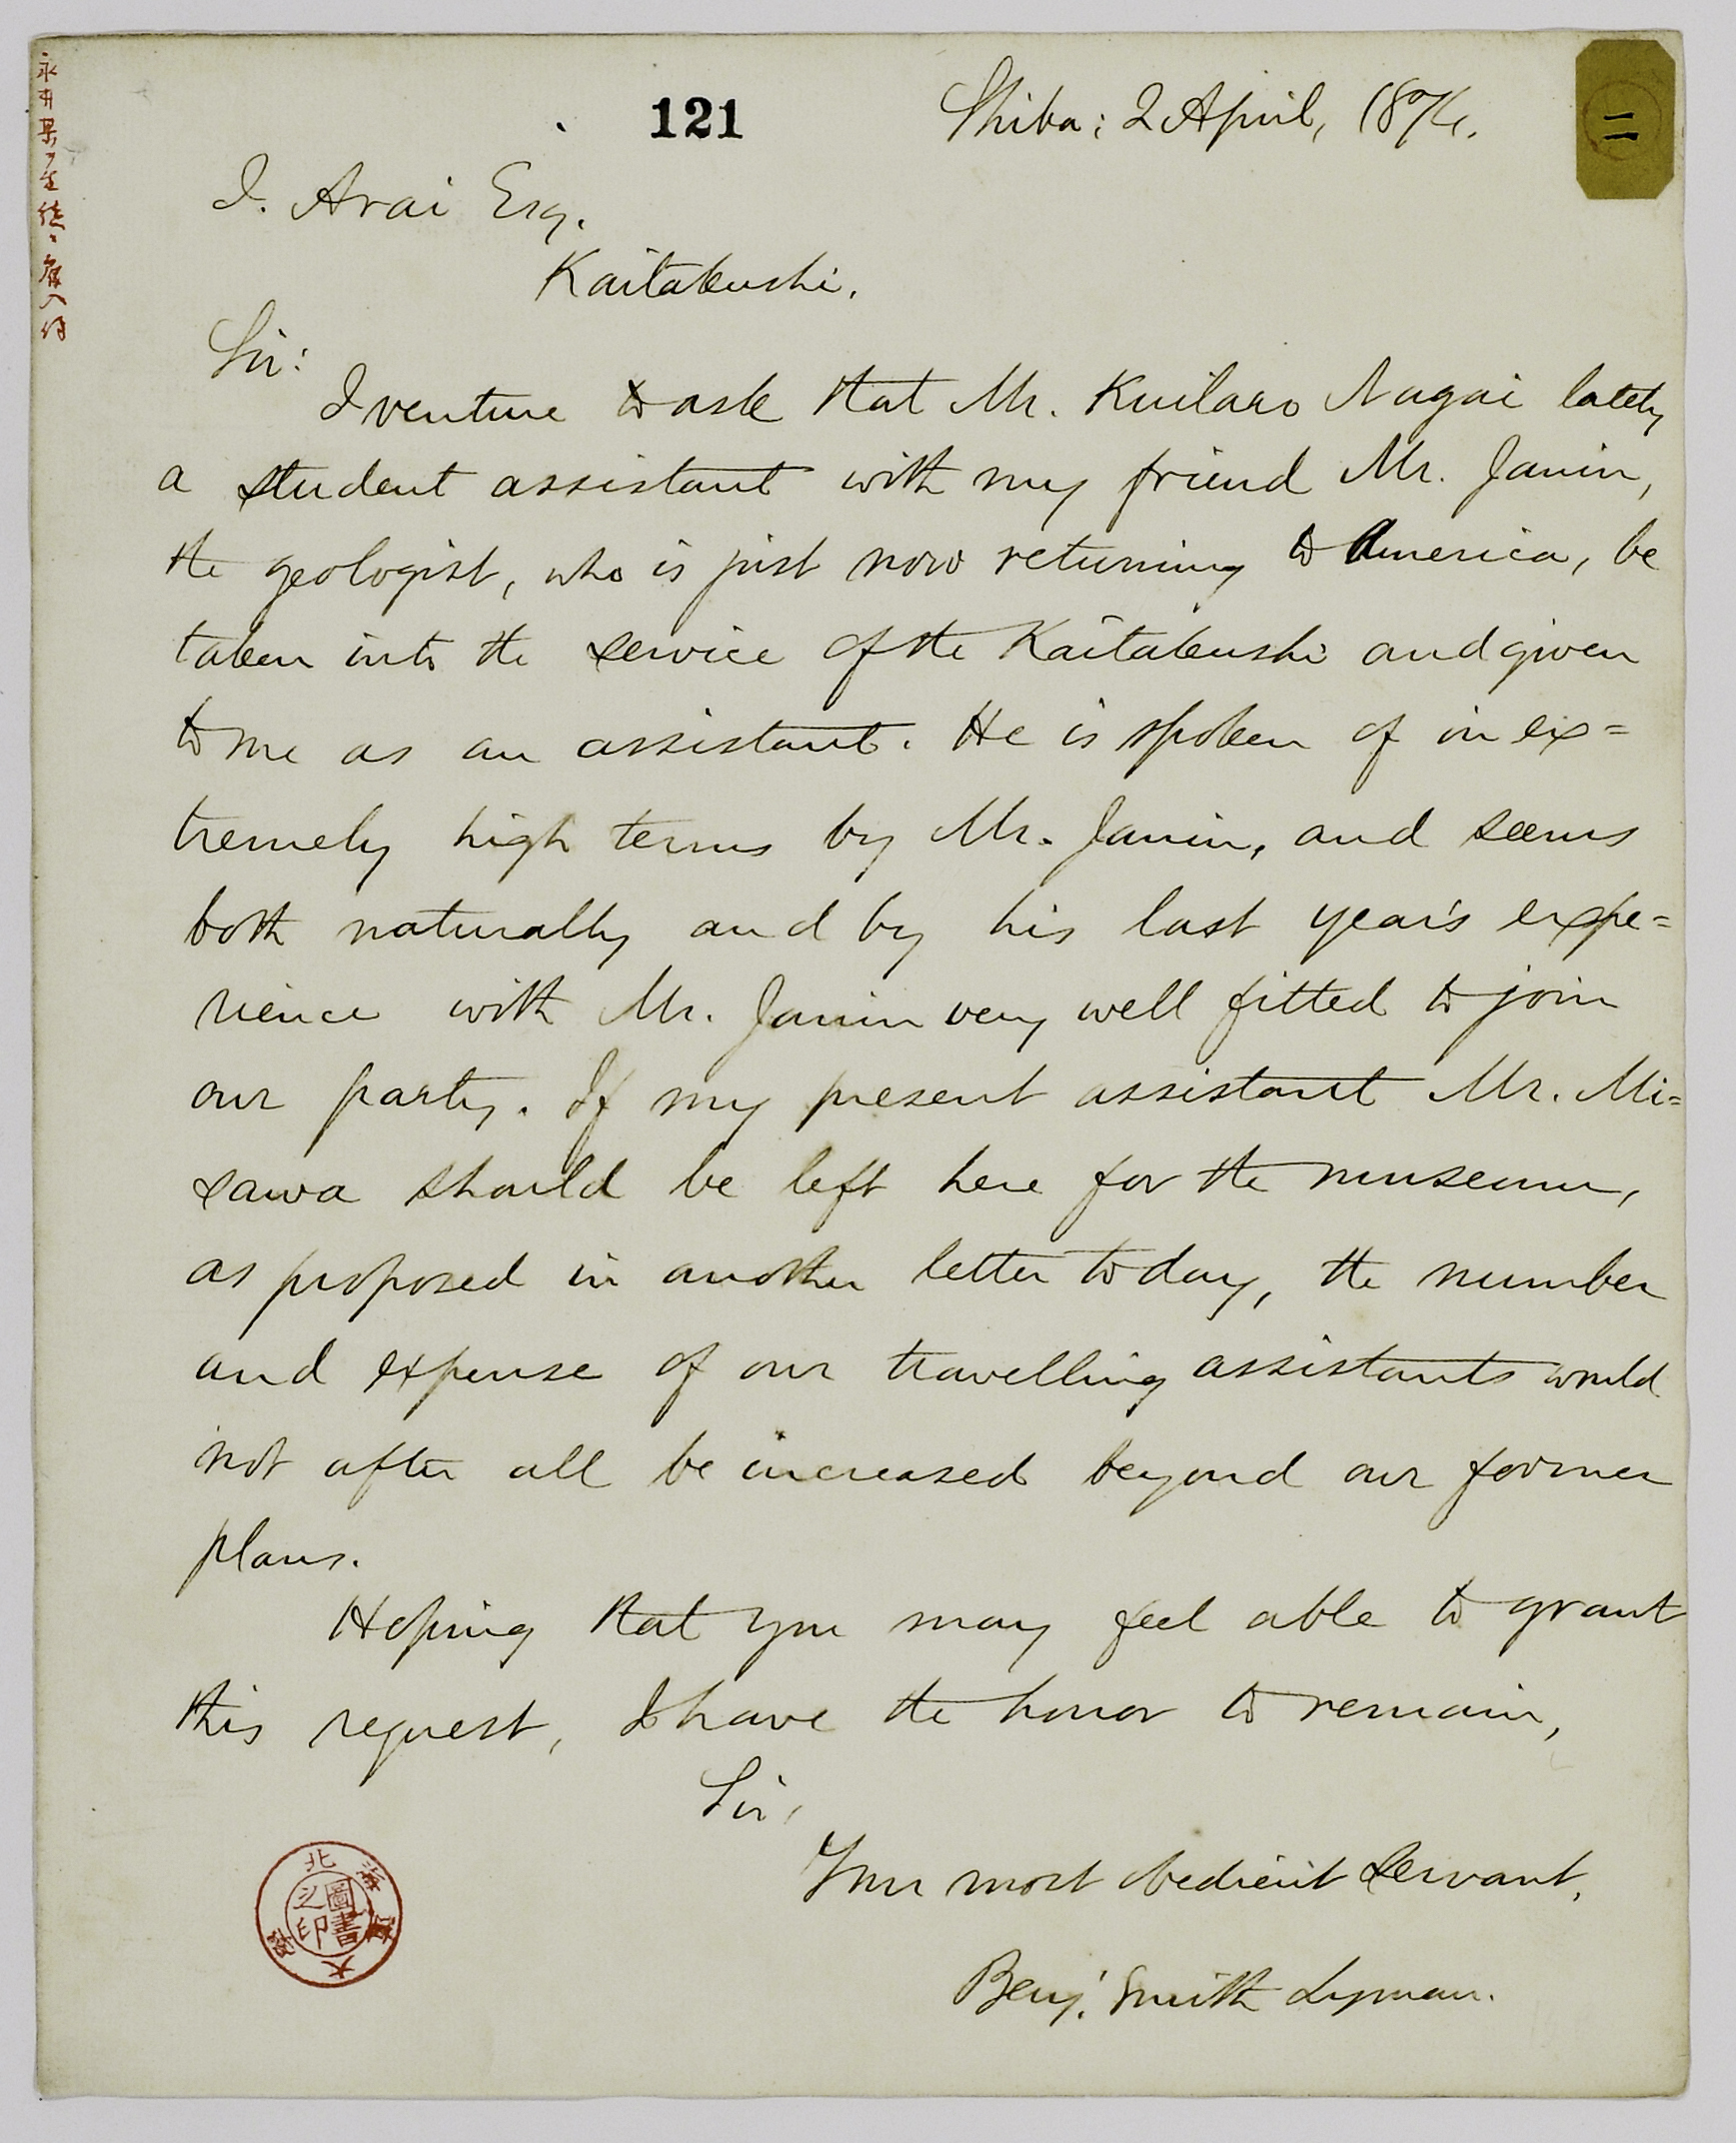 121
Shiba: 2 April, 1874.
二
I. Arai Esq.
Kaitakushi.
Sir:
I venture to ask that Mr. Nagai lately
a student assistant with my friend Mr. Janin,
the geologist, who is just now returning to America, be
taken into the service of the Kaitakushi and given
to me as an assistant. He is spoken of in ex=
tremely high terms by Mr. Janin, and seems
both naturally and by his last year's expe=
rience with Mr. Janin very well fitted to join
our party. If my present assistant Mr. Mi=
sawa should be left here for the museum,
as proposed in another letter today, the number
and expense of our travelling assistants would
not after all be increased beyond our former
plans.
Hoping that you may feel able to grant
this request, I have the honor to remain,
Sir,
Your most obedient servant,
Benj. Smith Lyman.
北海道大學
圖書之印